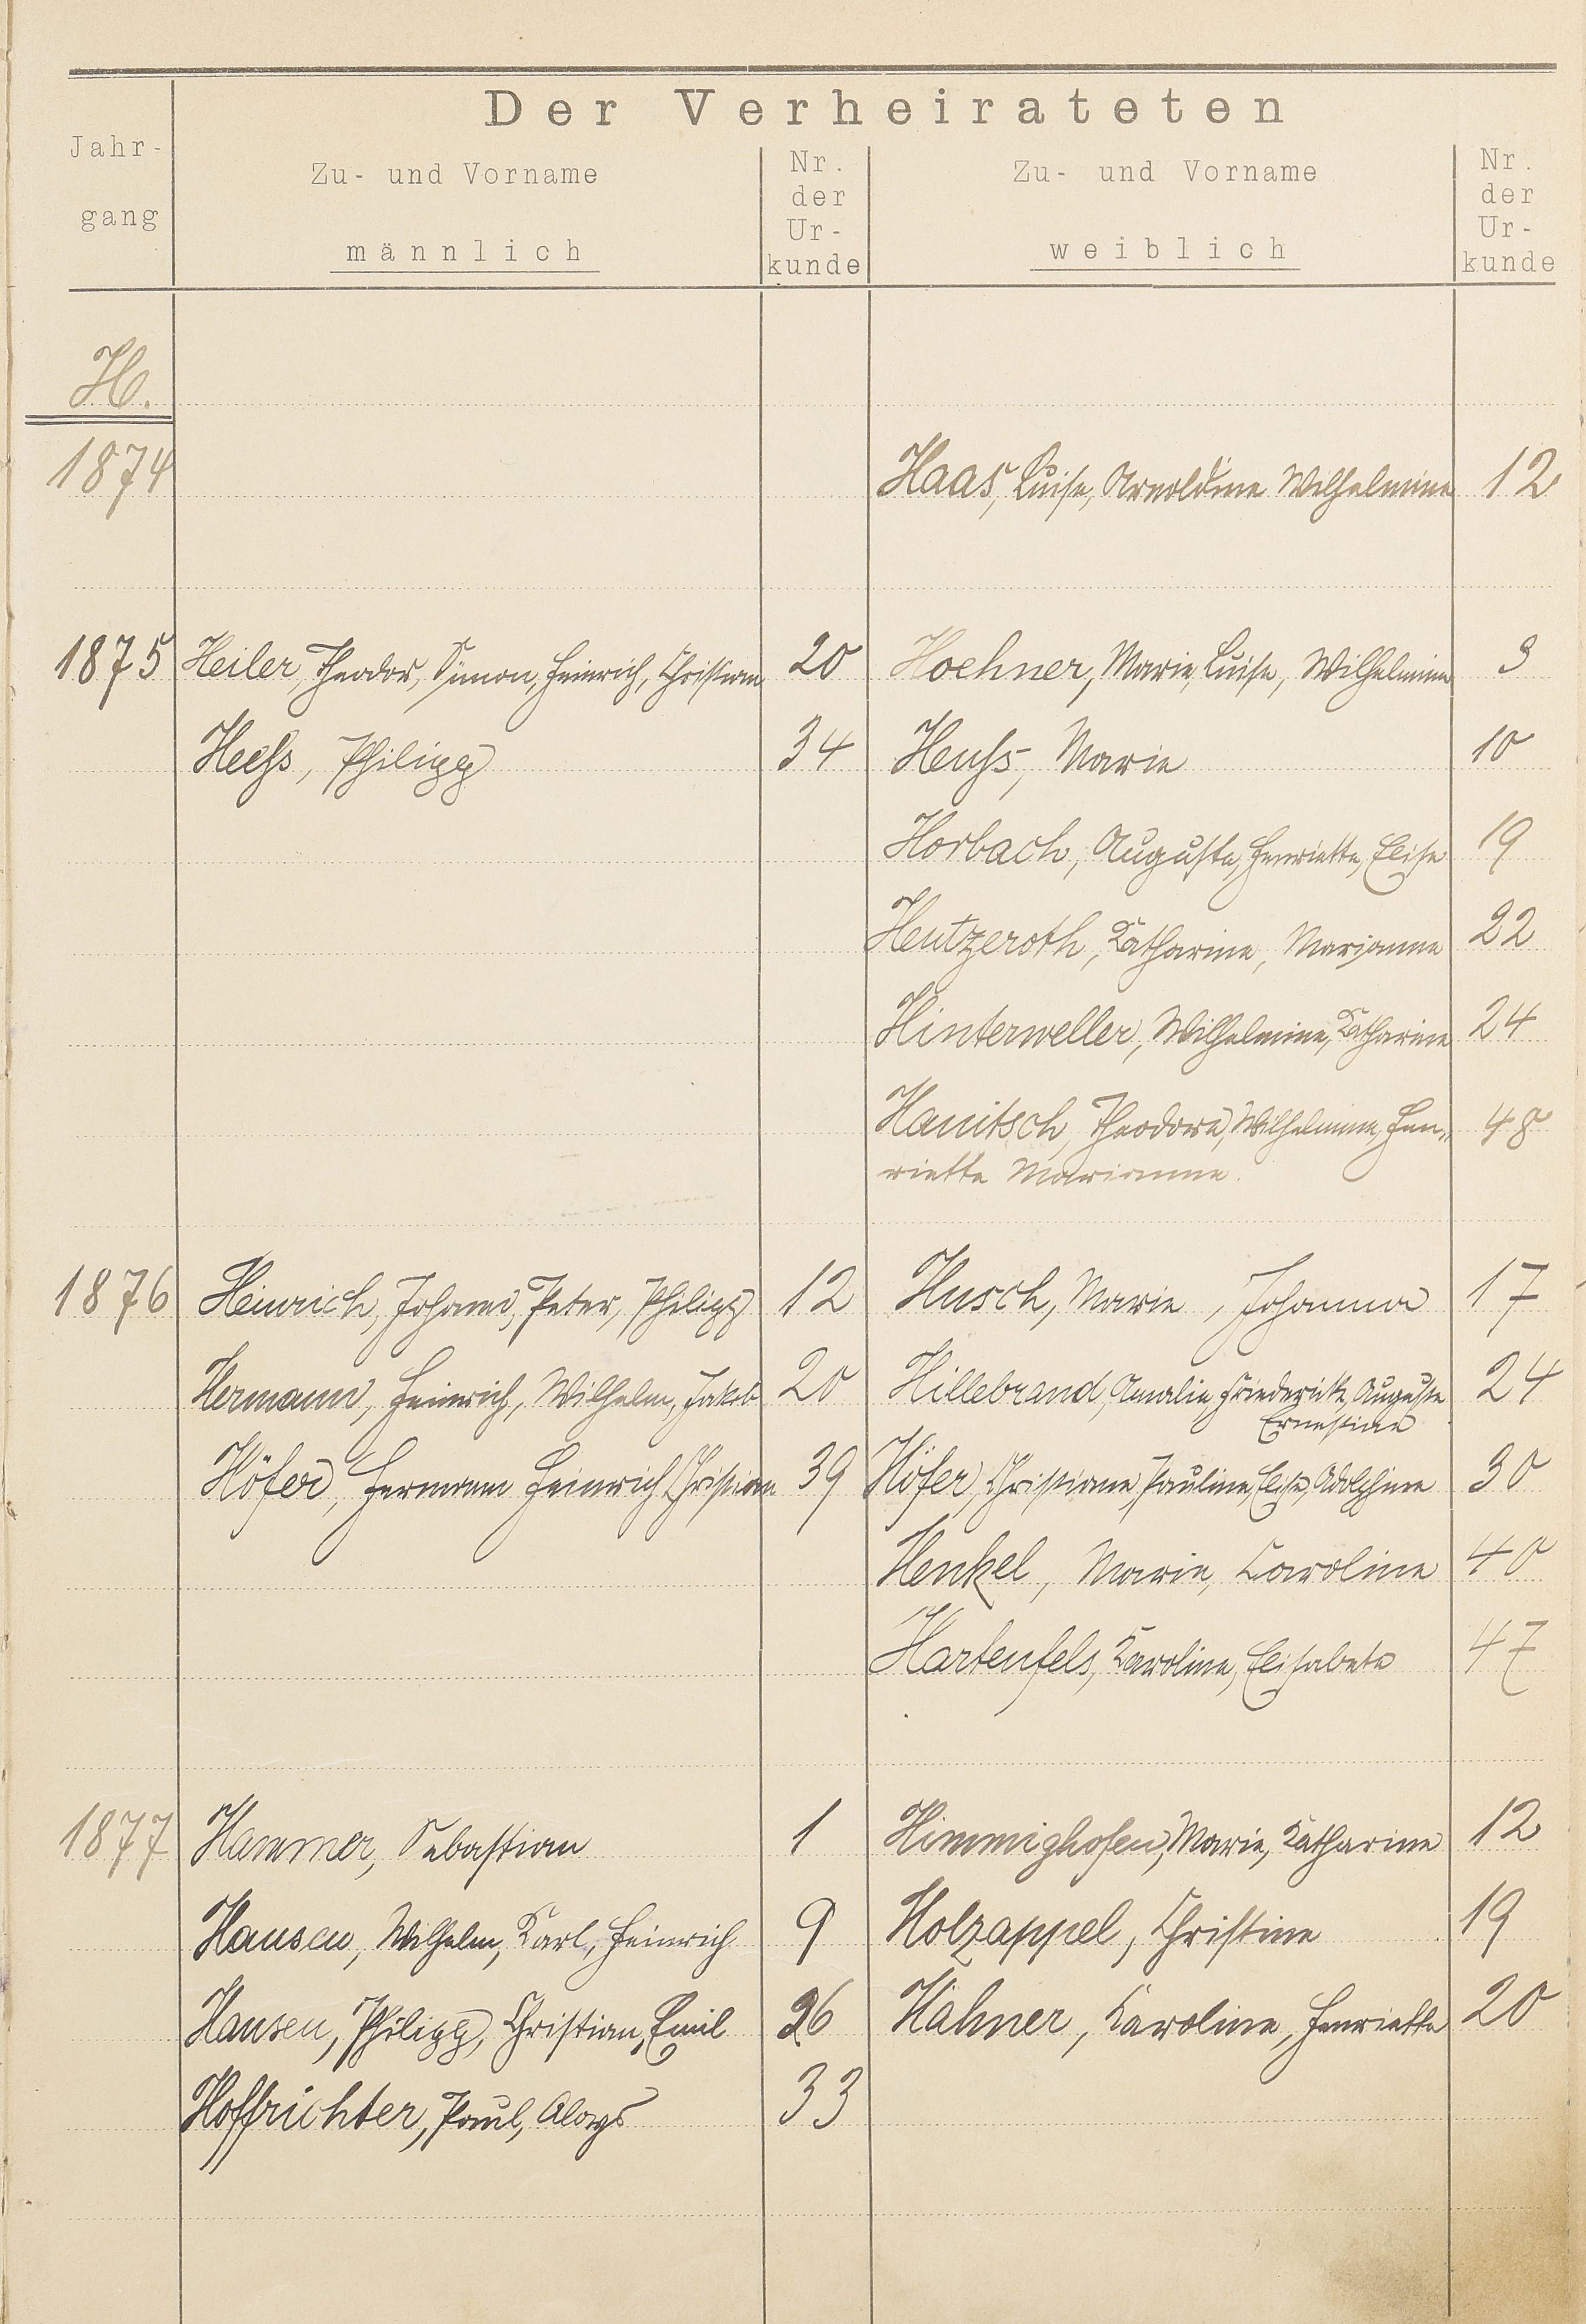 Der Verheirateten
Jahr-
gang
Zu- und Vorname
männlich
Nr.
der
Ur-
kunde
Zu- und Vorname
weiblich
Nr.
der
Ur-
kunde
H.
1874 Haas, Luise, Arnoldine Wilhelmine 12
1875 Heiler, Theodor, Simon, Heinrich, Christian 20 Hoehner, Marie, Luise, Wilhelmine 3
Heeß, Philipp 34 Heuß, Marie 10
Horbach, Auguste, Henriette, Elise 19
Hentzeroth, Katharine, Marianne 22
Hinterweller, Wilhelmine, Katharine 24
Hanitsch, Theodore, Wilhelmine, Hen„ 48
riette Marianne.
1876 Heinrich, Johann, Peter, Philipp 12 Husch, Marie, Johanna 17
Hermann, Heinrich, Wilhelm, Jakob 20 Hillebrand, Amalie Friederike, Auguste 24
Ernestine
Höfer, Hermann Heinrich Christian 39 Höfer, Christiane, Pauline, Elise, Adolphine 30
Henkel, Marie, Caroline 40
Hartenfels, Karoline, Elisabeta 47
1877 Hammer, Sebastian 1 Himmighofen, Marie, Katharine 12
Hansen, Wilhelm, Karl, Heinrich 9 Holzappel, Christine 19
Hansen, Philipp, Christian, Emil 26 Hähner, Karoline, Henriette 20
Hoffrichter, Paul, Aloys 33